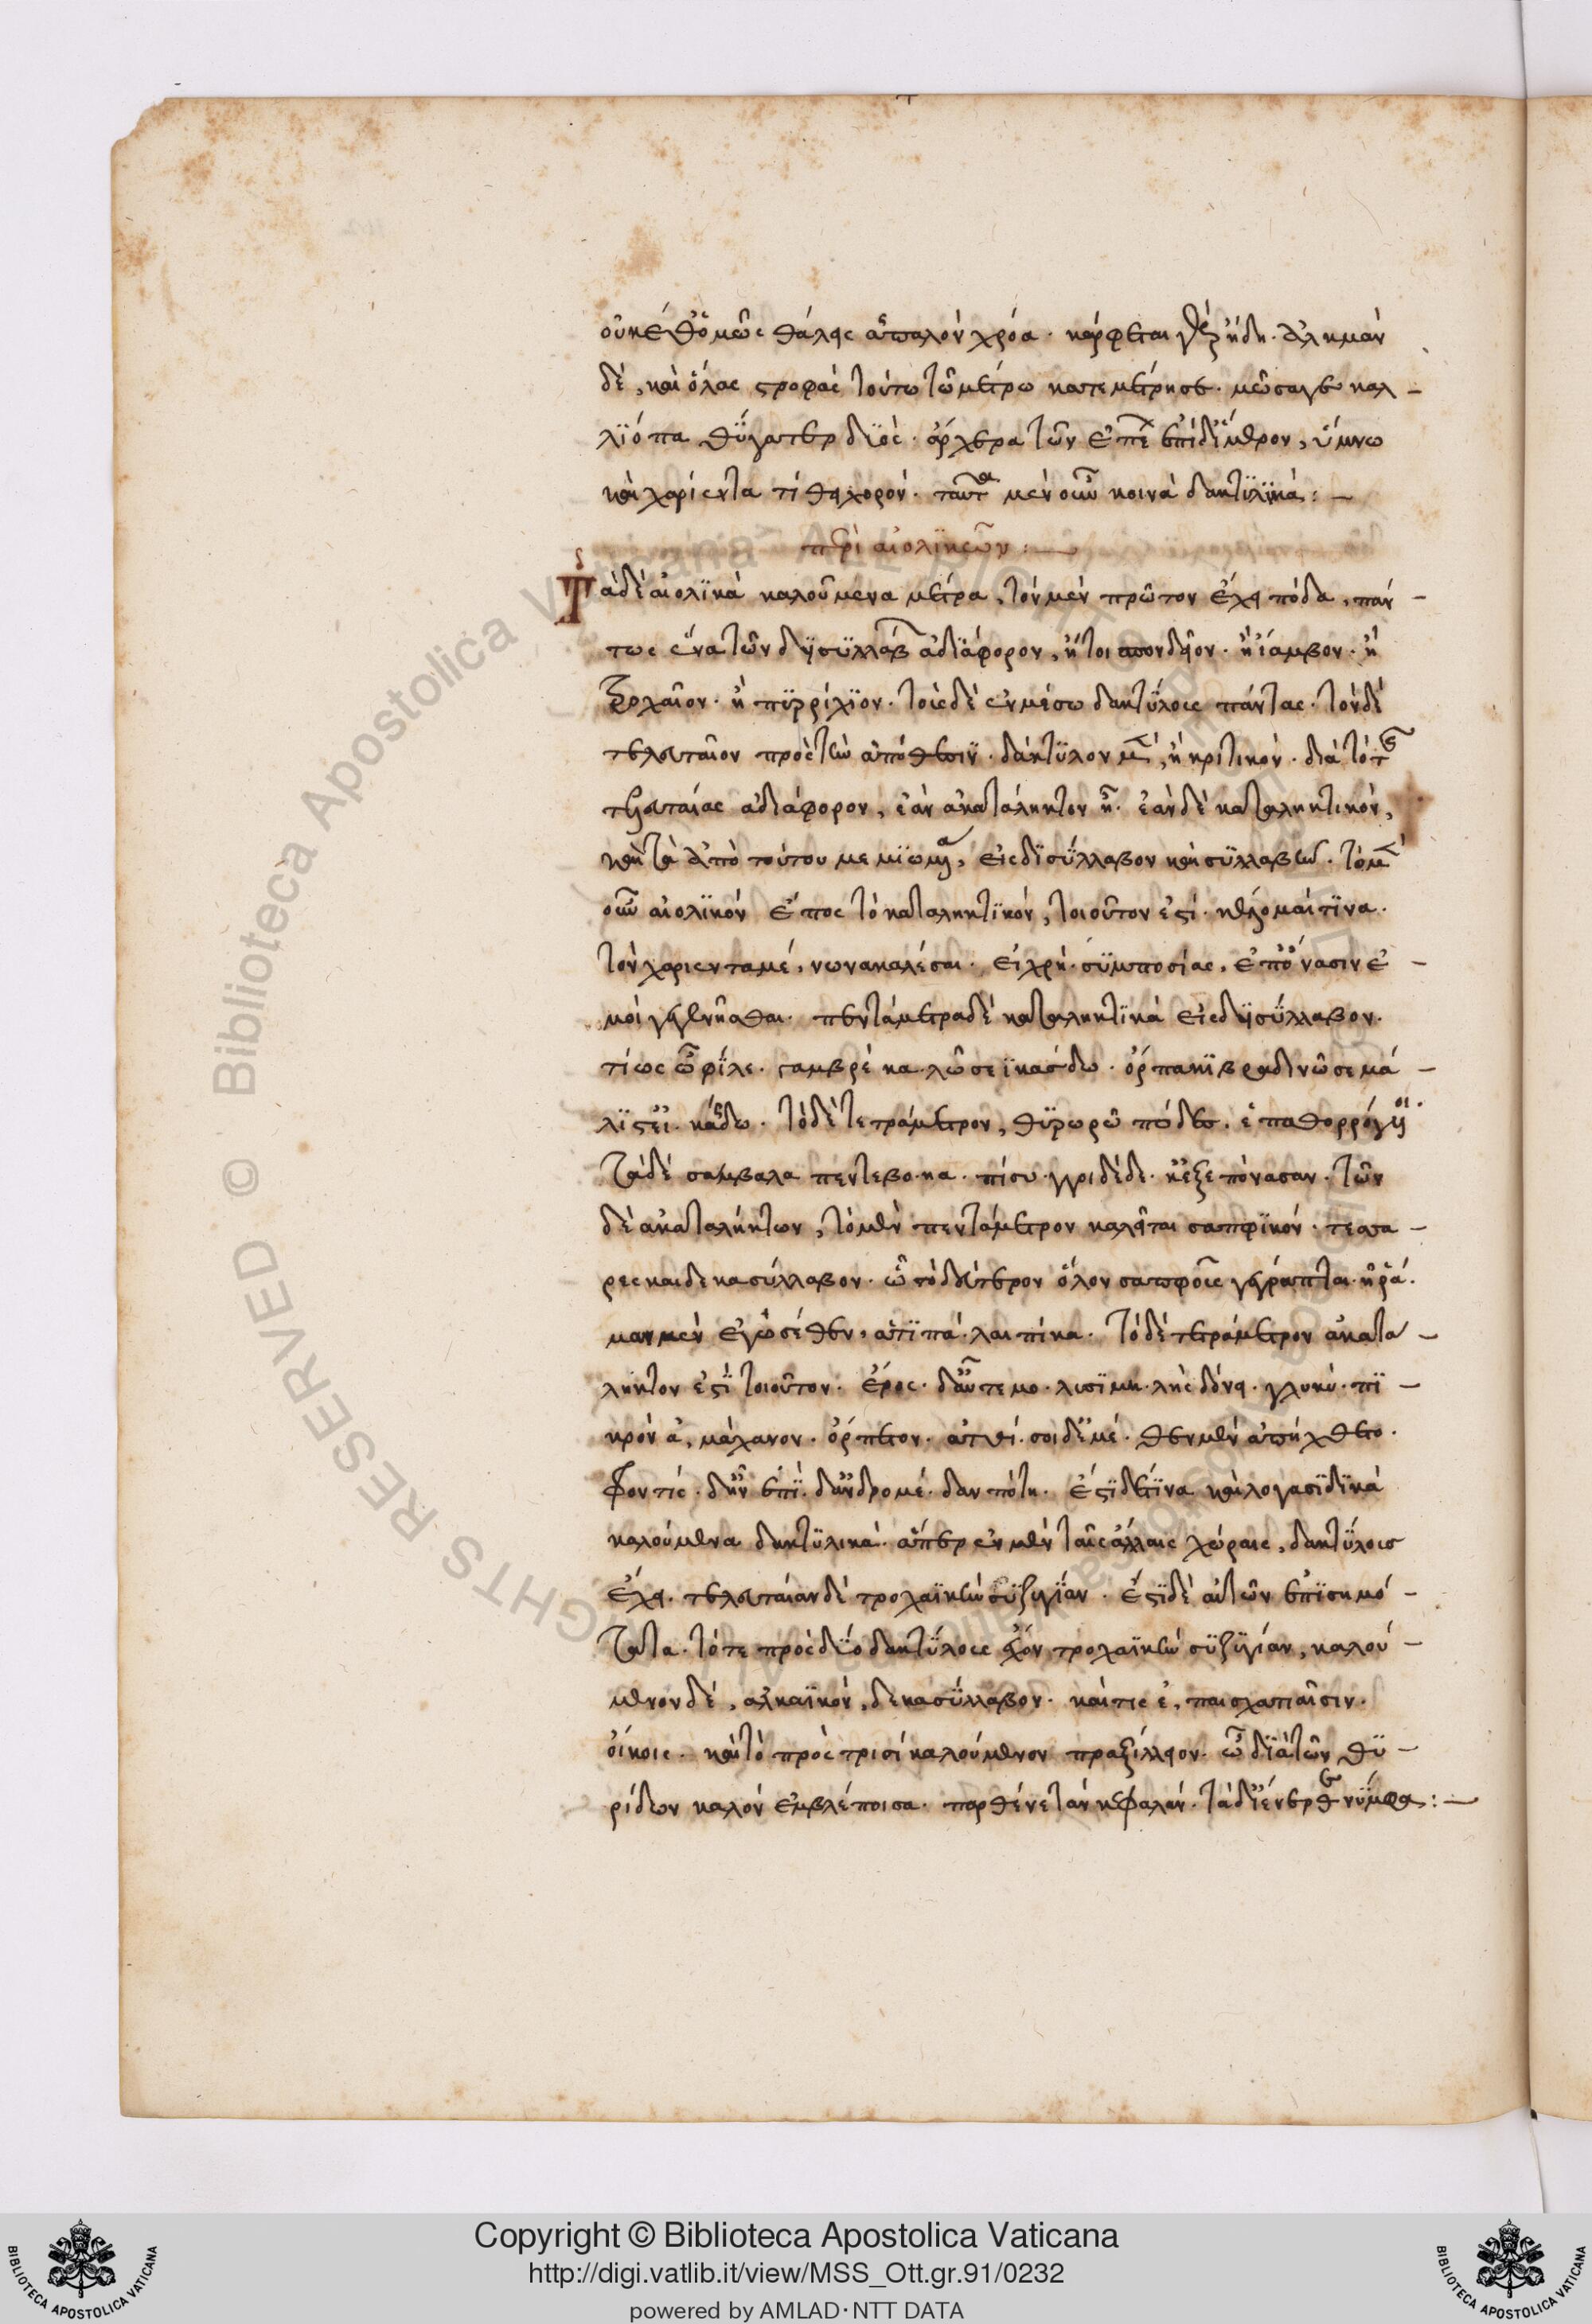 οὐκέθ' ὁμῶς θάλεις ἁπαλὸν χρόα. κάρφεται γὰρ ἤδη. ἀλκμὰν
δὲ, καὶ ὅλας στροφὰς τούτω τῶ μέτρω κατεμέτρησε. μῶσαγε καλ-
λϊόπα θύγατερ διὸς. ἄρχ' ἐρατῶν ἐπε ἐπὶ δ' ἵμερον, ὕμνω
καὶ χαρίεντα τίθει χορόν. ταῦτα μὲν οὖν κοινὰ δακτυλϊκά:-
περὶ αἰολϊκῶν:-
Τὰ δὲ αἰολϊκὰ καλούμενα μέτρα, τὸν μὲν πρῶτον ἔχει πόδα, πάν-
τως ἕνα τῶν δισυλλάβ ἀδϊάφορον, ἤτοι σπονδεῖον. ἢ ἴαμβον. ἢ
τροχαῖον. ἢ πϋρρίχϊον. τοὺς δὲ ἐν μέσω δακτύλους πάντας. τὸν δὲ
τελευταῖον πρὸς τὴν ἀπόθεσιν. δάκτυλον μὲν, ἢ κριτικόν. διὰ τὸ τῆς
τελευταίας ἀδιάφορον, ἐὰν ἀκατάληκτον ἦ. ἐὰν δὲ καταληκτικόν,
καὶ τὰ ἀπὸ τούτου μεμϊωμένα, εἰς δϊσύλλαβον καὶ συλλαβήν. τὸ μὲν
οὖν αἰολϊκὸν ἔπος τὸ καταληκτϊκόν, τοιοῦτον ἐστί. κέλομαί τινα.
τὸν χαρίεντα μέ, νωνακαλέσαι. εἰ χρὴ. συμποσίας, ἐπ' ὄνασιν ἐ-
μοὶ γεγενῆσθαι. πεντάμετρα δὲ καταληκτϊκὰ εἰς δισύλλαβον.
τίως ὦ φίλε. γαμβρέ κα. λῶσε ϊκάσδω. ὄρπακϊ βραδινῶ σε μά-
λϊστ' εϊ. κάσδω. τὸ δὲ τετράμετρον, θυρωρῶ πόδες. ἐπατορρόγυιοι.
τὰ δὲ σάμβαλα πεντεβο. κα. πίσυ. γγοι δὲ δε. κ' ἐξεπόνασαν. τῶν
δὲ ἀκαταλήκτων, τὸ μὲν πεντάμετρον καλεῖται σαπφϊκόν. τεσσα-
ρεσκαιδεκασύλλαβον. ὧ τὸ δεύτερον ὅλον σαπφοῦς γέγραπται. ἠρά.
μαν μὲν ἐγὼ σέθεν, ἄτϊ πά. λαι πίκα. τὸ δὲ τετράμετρον ἀκατά-
ληκτον ἐστὶ τοιοῦτον. ἔρος. δαὖτε μο. λυσϊμε. λὴς δόνει. γλυκύ. πϊ-
κρὸν ἀ, μάχανον. ὄρπετον. ἀτθί. σοι δ' ἐμέ. θεν μὲν ἀπήχθετο.
φοντίς. δην ἐπϊ. δανδρομέ. δαν πότη. ἔστϊ δέ τϊνα καὶ λογασϊδϊκὰ
καλούμενα δακτυλικά. ἅπερ ἐν μὲν ταῖς ἄλλαις χώραις, δακτύλους
ἔχει. τελευταίαν δὲ τροχαϊκὴν συζυγίαν. ἔστϊ δὲ αὐτῶν ἐπϊσημό-
τατα. τό τε πρὸς δύο δακτύλοις ἔχον τροχαϊκὴν συζϋγίαν, καλού-
μενον δὲ, ἀλκαϊκόν, δεκασύλλαβον. καί τις ἐ, παισχατιαῖσιν.
οἴκοις. καὶ τὸ πρὸς τρισὶ καλούμενον πραξίλλειον. ὦ διὰ τῶν θυ-
ρίδων καλὸν ἐμβλέποισα. παρθένε τὰν κεφαλάν. τὰ δ' ἔνερθεν νύμφα:-
Copyright © Biblioteca Apostolica Vaticana
http://digi.vatlib.it/view/MSS_Ott.gr.91/0232
powered by AMLAD·NTT DATA